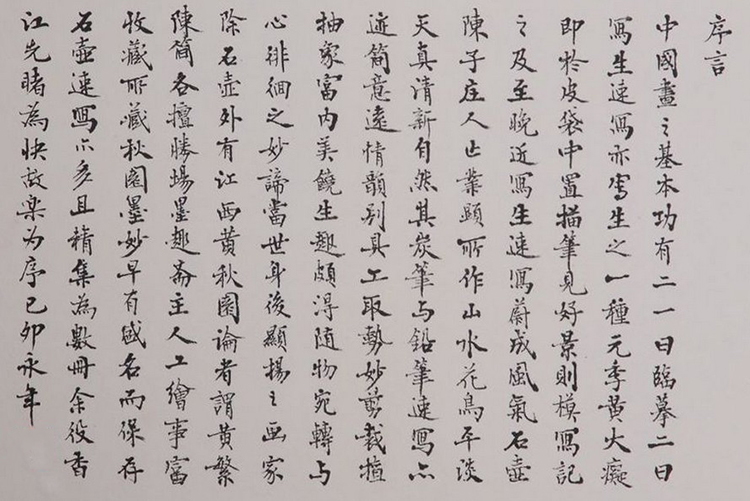 序言
中國畫之基本功有二一曰臨摹二曰
寫生速寫亦寫生之一種元季黃大癡
即於皮袋中置描筆見好景則模寫記
之及至晚近寫生速寫蔚成風氣石壺
陳子庄人亡業顯所作山水花鳥平淡
天真清新自然其炭筆与鉛筆速寫亦
迹簡意遠情韻別具工取勢妙剪裁擅
抽象富内美饒生趣頗得随物宛轉与
心徘徊之妙諦當世身後顯揚之画家
除石壺外有江西黃秋園論者謂黃繁
陳簡各擅勝場墨趣斋主人工繪事富
收藏所藏秋園墨妙早有盛名而保存
石壺速寫亦多且精集為數冊余役香
江先睹為快故樂为序己卯永年